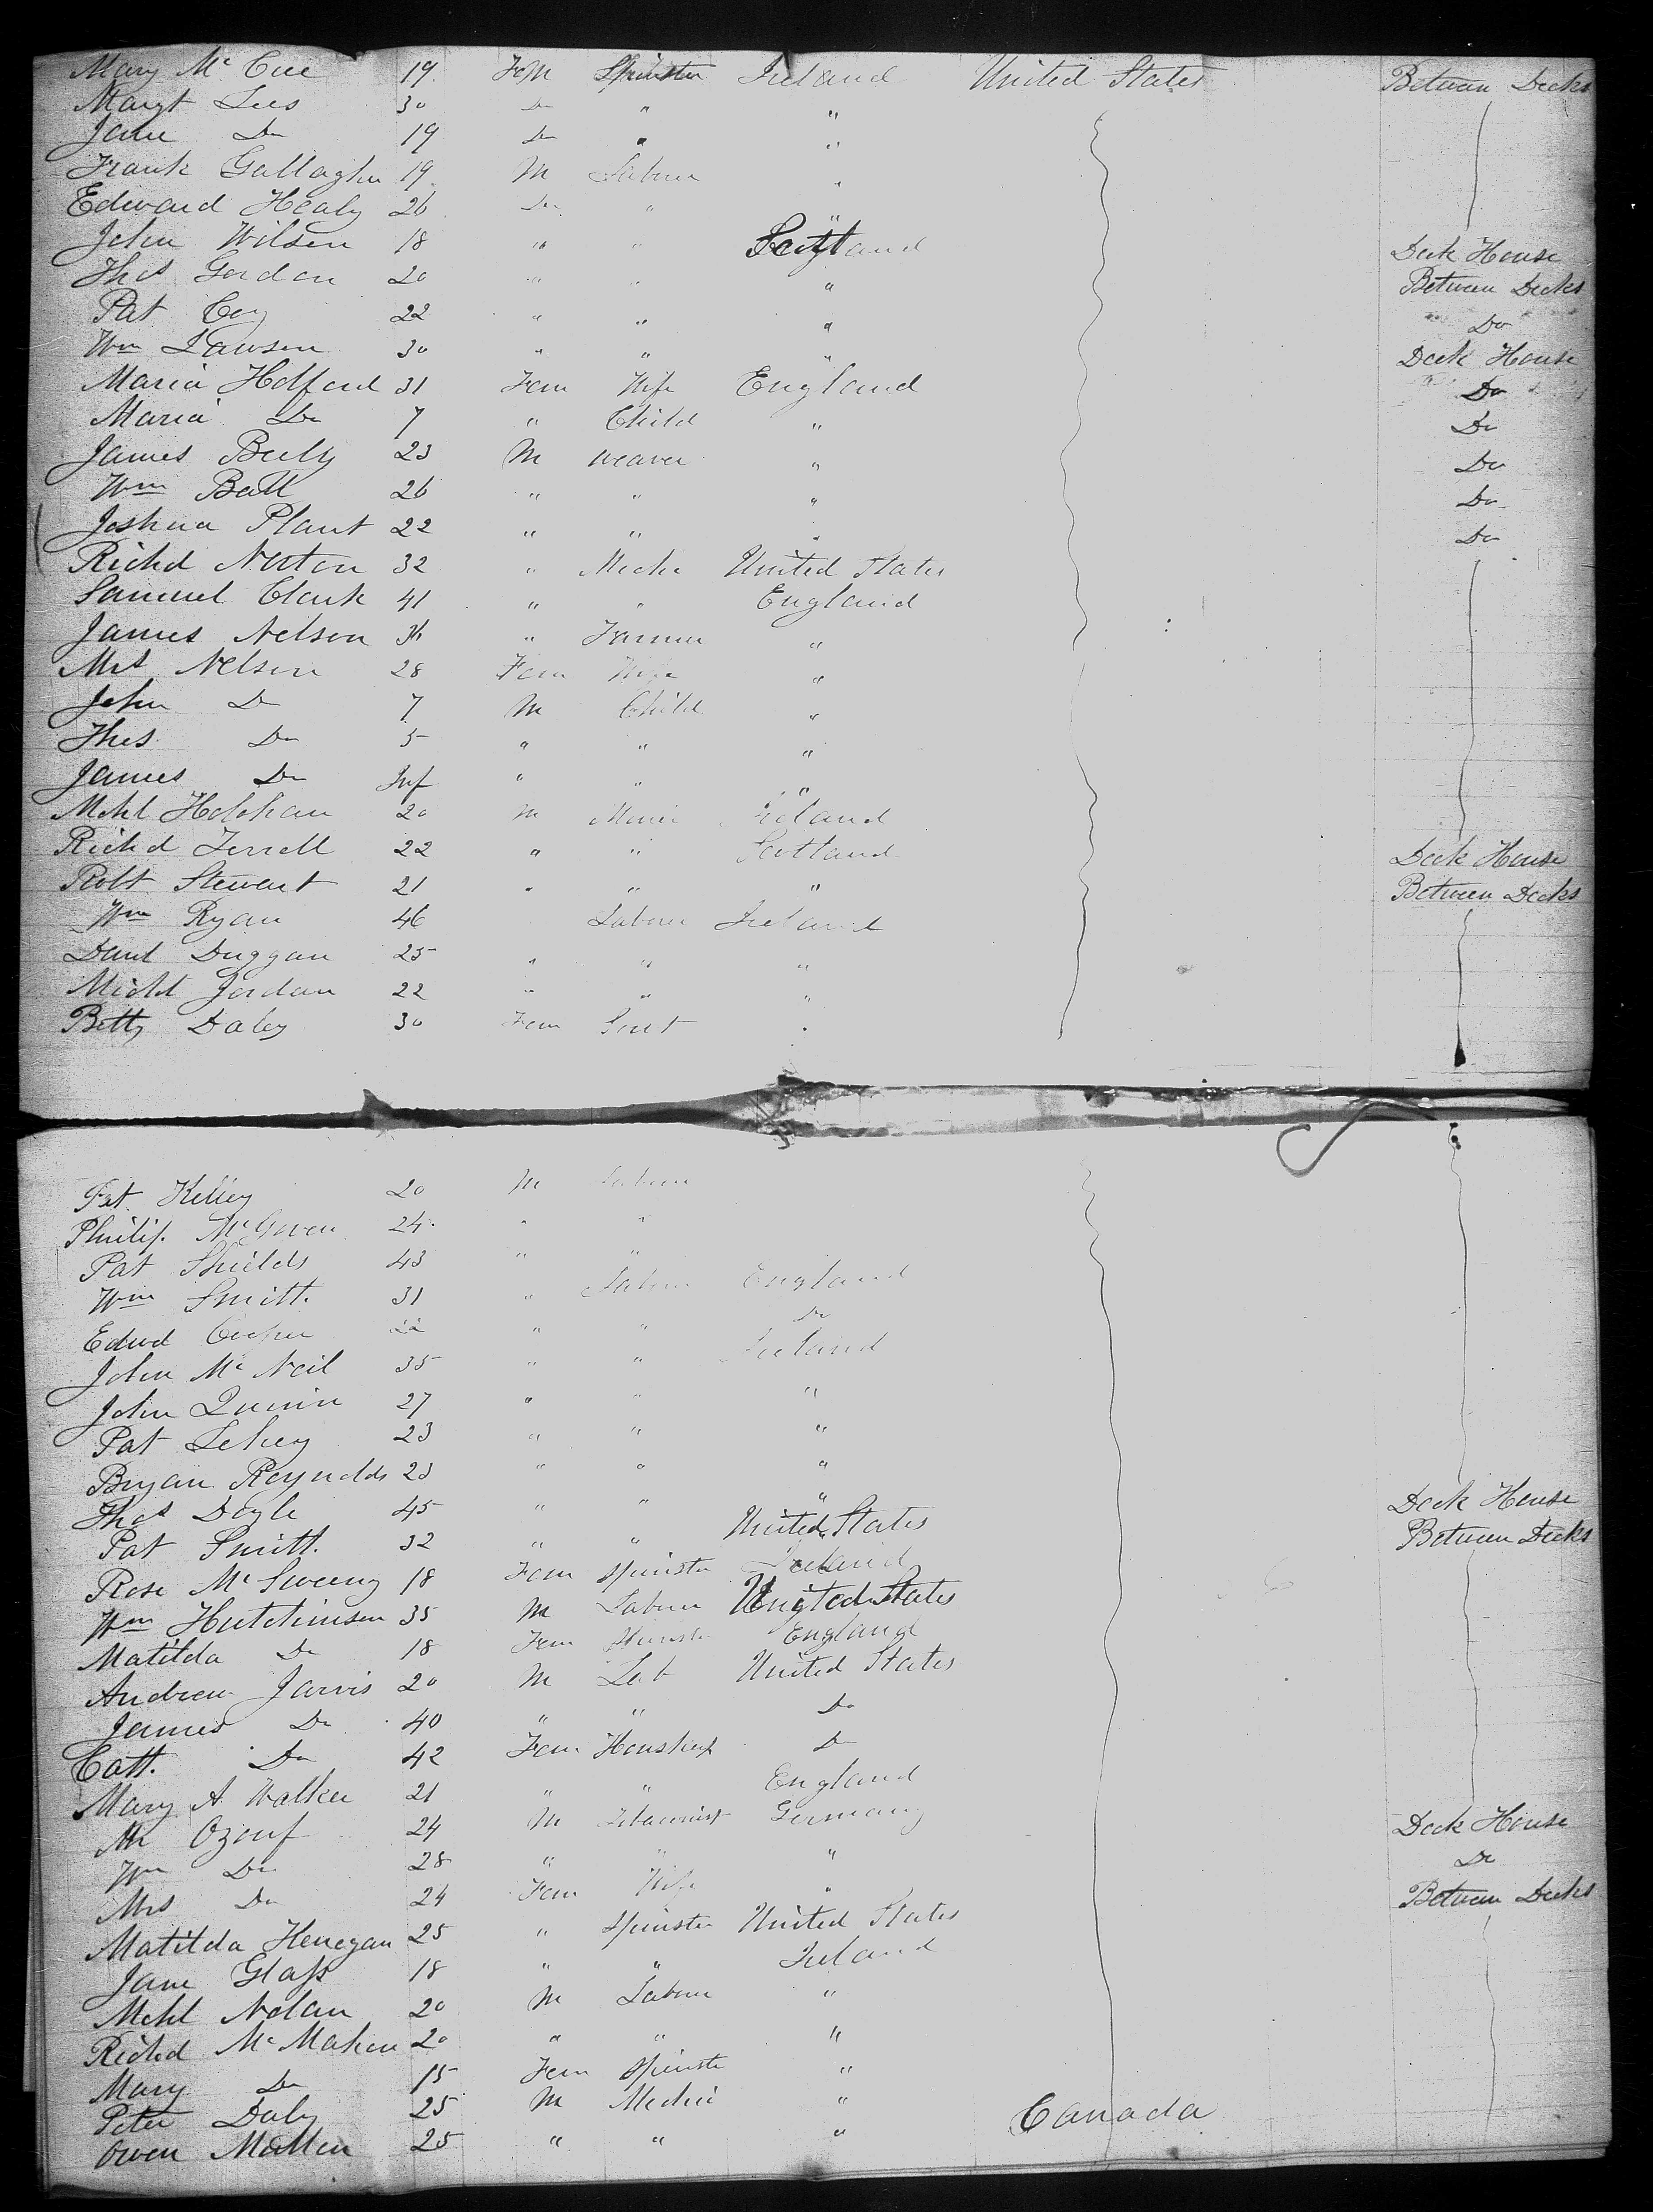 Mary McCue 19 Fem Spinster Ireland United States Between Decks
Margt Lees 30 Do " "
Jane Do 19 Do " "
Frank Gallagher 19 M Laborer "
Edward Healy 26 Do " "
John Wilson 18 " " Scotland Deck House
Thos Gordon 20 " " " Between Decks
Pat Coy 22 " " " Do
Wm Lawson 30 " " " Deck House
Maria Holford 31 Fem Wife England Do
Maria Do 7 " Child " Do
James Beely 23 M Weaver " Do
Wm Ball 26 " " " Do
Joshua Plant 22 " " " Do
Richd Norton 32 " Mechc United States
Samuel Clark 41 " " England
James Nelson 36 " Farmer "
Mrs Nelson 28 Fem Wife "
John Do 7 M Child "
Thos Do 5 " " "
James Do Inf " " "
Mchl Holohan 20 M Miner Ireland
Richd Terrell 22 " " Scotland Deck House
Robt Stewart 21 " " " Between Decks
Wm Ryan 46 Laborer Ireland
Danl Duggan 25 " " "
Michl Jordan 22 " " "
Betty Daley 30 Fem Sert "
Pat Kelley 20 M Laborer
Philip McGoven 24 " "
Pat Shields 43 " "
Wm Smith 31 " Laborer England
Edwd Cooper 22 " " Do
John McNeil 35 " " Ireland
John Quinn 27 " " "
Pat Lehey 23 " " "
Bryan Reynolds 23 " " "
Thos Doyle 45 " " " Deck House
Pat Smith 32 " " United States Between Decks
Rose McSweeny 18 Fem Spinster Ireland
Wm Hutchinson 35 M Laborer United States
Matilda Do 18 Fem Spinster England
Andrew Jarvis 20 M Lab United States
James Do 40 " " Do
Cath Do 42 Fem Houskep Do
Mary A Walker 21 " " England
M Ozouf 24 M Germany Deck House
Wm Do 28 " " " Do
Mrs Do 24 Fem Wife " Between Decks
Matilda Henegan 25 " Spinster United States
Jane Glass 18 " " Ireland
Mchl Nolan 20 M Laborer "
Richd McMahon 20 " " "
Mary Do 15 Fem Spinster "
Peter Daly 25 M Mechc " Canada
Owen Mallen 25 " " "